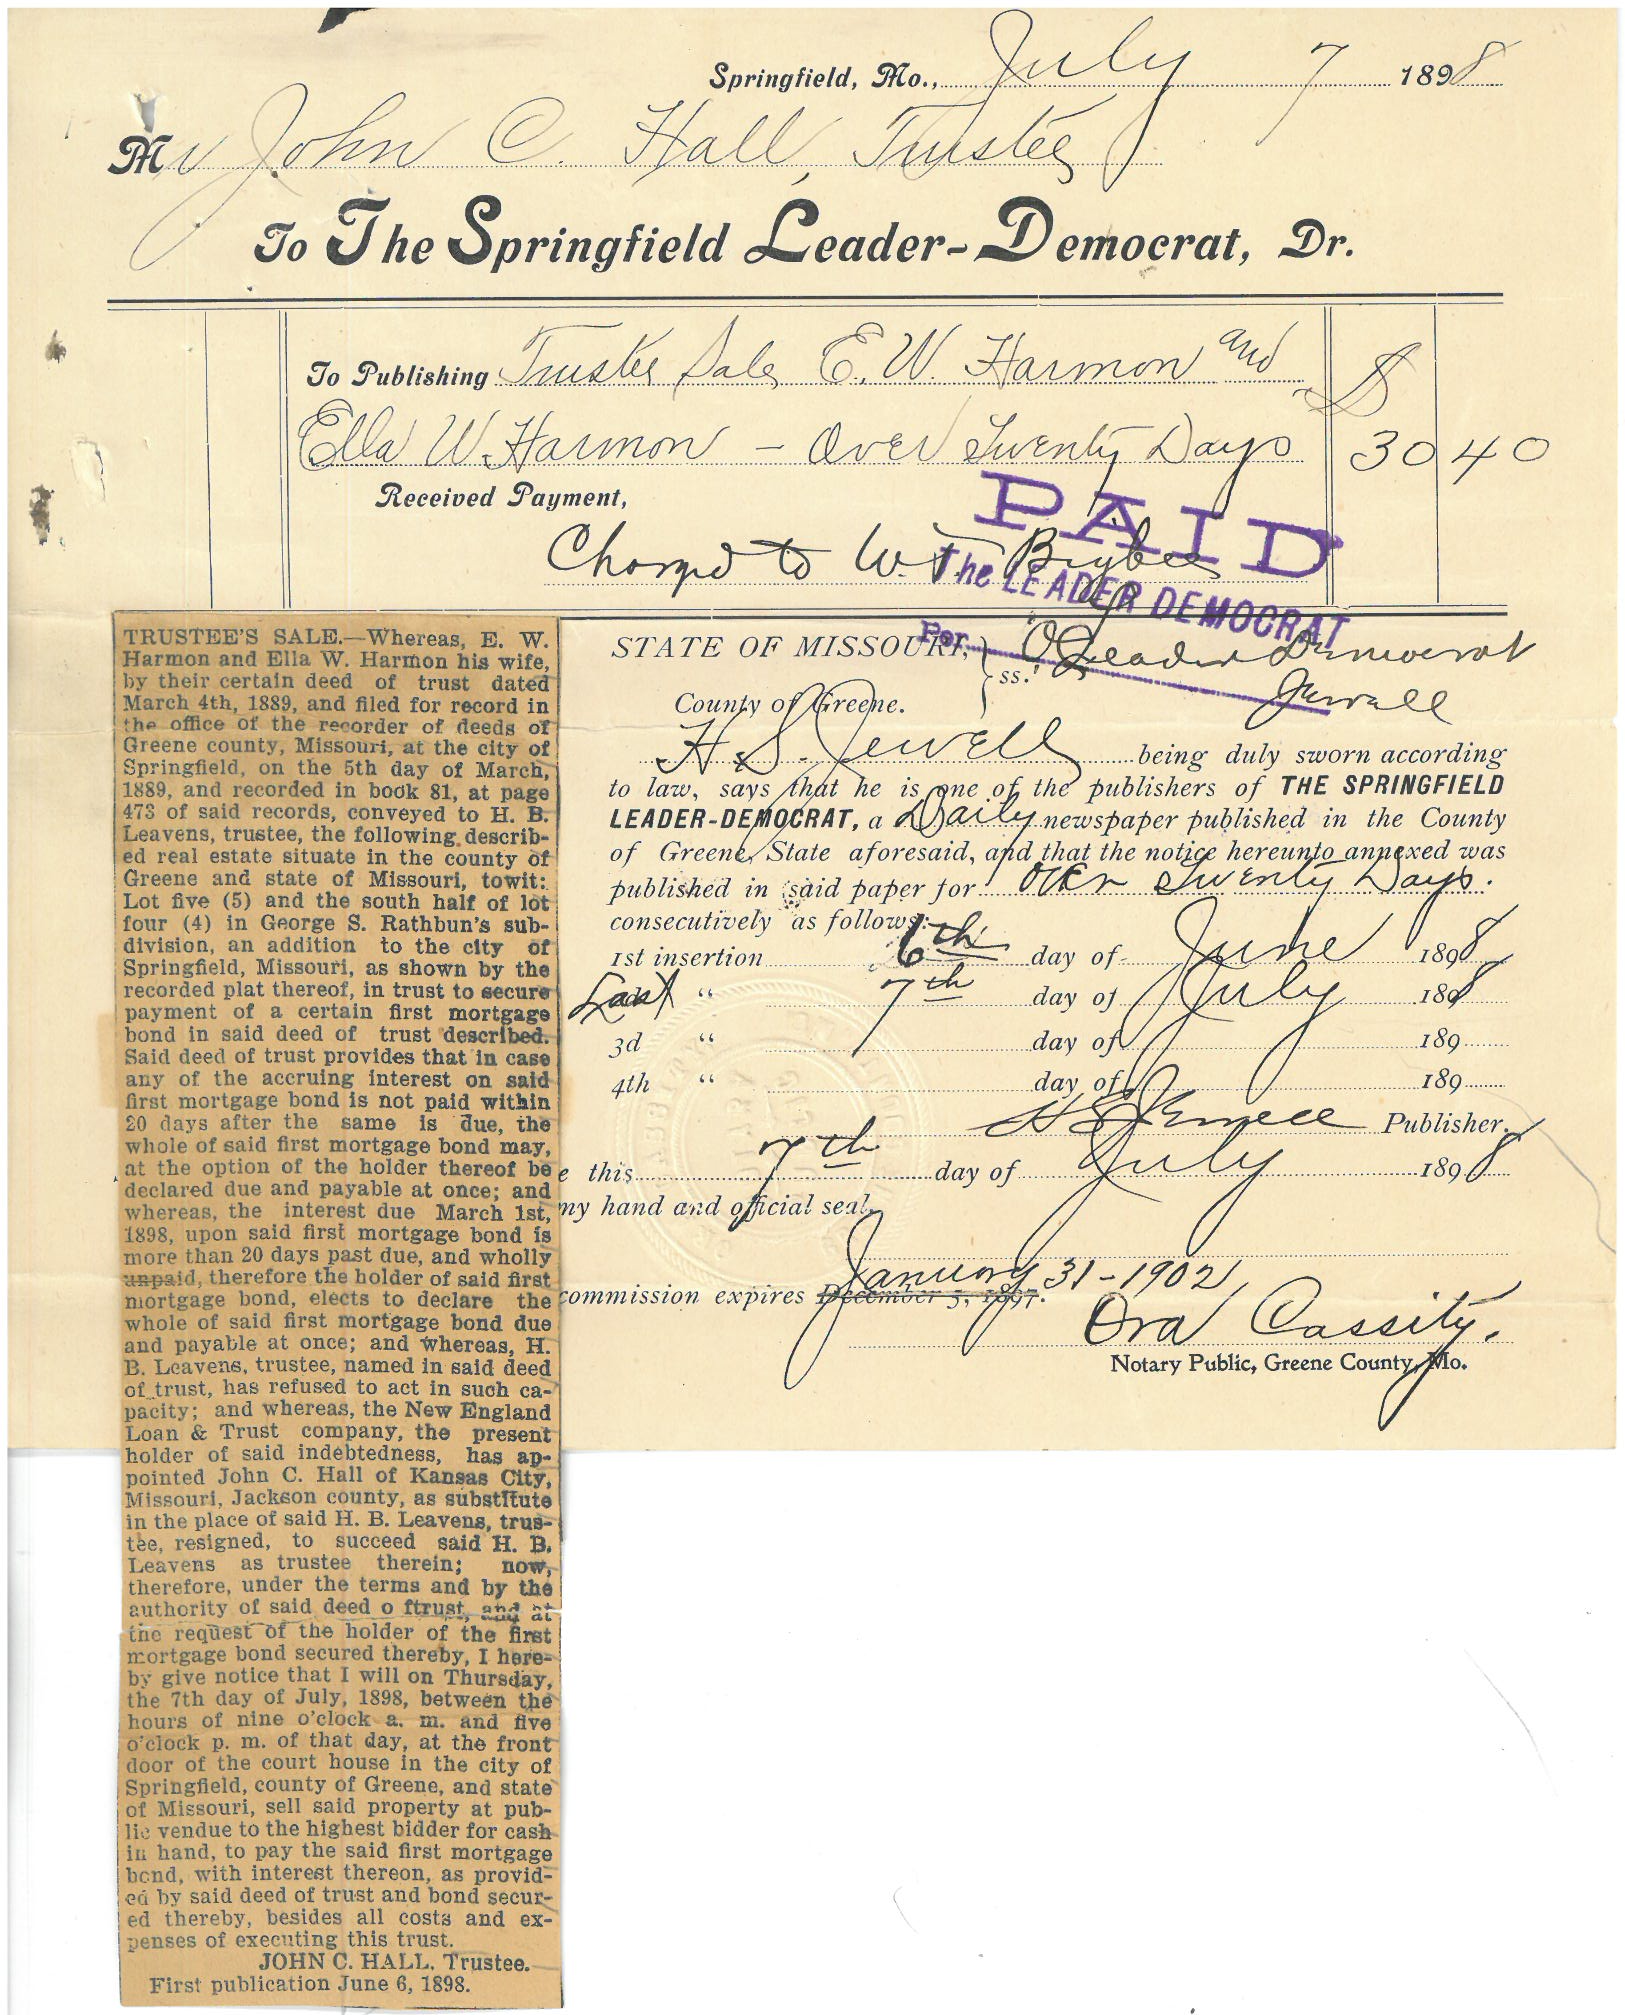 Springfield, Mo., July 7 1898
Mr John C. Hall, Trustee
To The Springfield Leader-Democrat, Dr.
To Publishing Trustee Sale E. W. Harmon and
Ella W. Harmon - Over Twenty Days $ 30 40
Received Payment,
PAID
Charged to W. T. Bigbee
The LEADER DEMOCRAT
Per
Leader Democrat
Jewell
TRUSTEE'S SALE.—Whereas, E. W.
Harmon and Ella W. Harmon his wife,
by their certain deed of trust dated
March 4th, 1889, and filed for record in
the office of the recorder of deeds of
Greene county, Missouri, at the city of
Springfield, on the 5th day of March,
1889, and recorded in book 81, at page
473 of said records, conveyed to H. B.
Leavens, trustee, the following describ-
ed real estate situate in the county of
Greene and state of Missouri, towit:
Lot five (5) and the south half of lot
four (4) in George S. Rathbun's sub-
division, an addition to the city of
Springfield, Missouri, as shown by the
recorded plat thereof, in trust to secure
payment of a certain first mortgage
bond in said deed of trust described.
Said deed of trust provides that in case
any of the accruing interest on said
first mortgage bond is not paid within
20 days after the same is due, the
whole of said first mortgage bond may,
at the option of the holder thereof be
declared due and payable at once; and
whereas, the interest due March 1st,
1898, upon said first mortgage bond is
more than 20 days past due, and wholly
unpaid, therefore the holder of said first
mortgage bond, elects to declare the
whole of said first mortgage bond due
and payable at once; and whereas, H.
B. Leavens, trustee, named in said deed
of trust, has refused to act in such ca-
pacity; and whereas, the New England
Loan & Trust company, the present
holder of said indebtedness, has ap-
pointed John C. Hall of Kansas City,
Missouri, Jackson county, as substitute
in the place of said H. B. Leavens, trus-
tee, resigned, to succeed said H. B.
Leavens as trustee therein; now,
therefore, under the terms and by the
authority of said deed o ftrust, and at
the request of the holder of the first
mortgage bond secured thereby, I here-
by give notice that I will on Thursday,
the 7th day of July, 1898, between the
hours of nine o'clock a. m. and five
o'clock p. m. of that day, at the front
door of the court house in the city of
Springfield, county of Greene, and state
of Missouri, sell said property at pub-
lic vendue to the highest bidder for cash
in hand, to pay the said first mortgage
bond, with interest thereon, as provid-
ed by said deed of trust and bond secur-
ed thereby, besides all costs and ex-
penses of executing this trust.
JOHN C. HALL, Trustee.
First publication June 6, 1898.
STATE OF MISSOURI, } ss.
County of Greene.
H. S. Jewell being duly sworn according
to law, says that he is one of the publishers of THE SPRINGFIELD
LEADER-DEMOCRAT, a Daily newspaper published in the County
of Greene, State aforesaid, and that the notice hereunto annexed was
published in said paper for Over Twenty Days.
consecutively as follows:
1st insertion 6th day of June 1898
Last " 7th day of July 1898
3d " day of 189
4th " day of 189
H S Jewell Publisher.
e this 7th day of July 1898
my hand and official seal.
January 31-1902
commission expires December 5, 1897.
Ora Cassity.
Notary Public, Greene County, Mo.